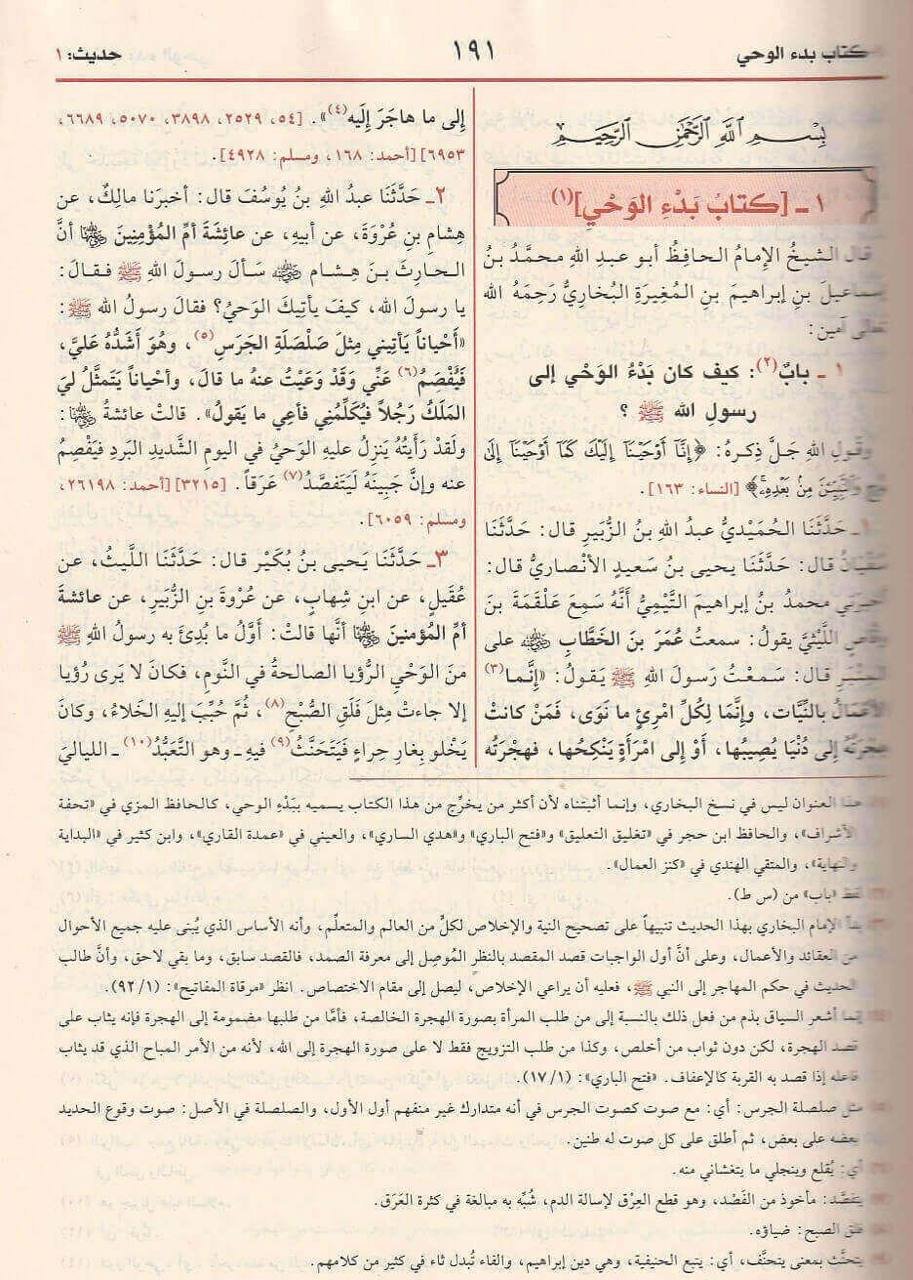 كتاب بدء الوحي
١٩١
حديث: ١
بِسْمِ اللَّهِ الرَّحْمَنِ الرَّحِيمِ
١ ـ [كتابُ بَدْءِ الوَحْيِ](١)
قال الشيخُ الإمامُ الحافظُ أبو عبدِ اللهِ محمَّدُ بنُ
إبراهيمَ بنِ المُغِيرَةِ البُخاريُّ رَحِمَهُ اللهُ
تعالى آمين:
١ ـ بابٌ(٢): كيف كان بَدْءُ الوَحْيِ إلى
رسولِ اللهِ ﷺ ؟
وقولِ اللهِ جَلَّ ذِكرهُ: ﴿إِنَّآ أَوْحَيْنَآ إِلَيْكَ كَمَآ أَوْحَيْنَآ إِلَىٰ
مِنۢ بَعْدِهِۦ﴾ [النساء: ١٦٣].
حَدَّثَنَا الحُمَيْدِيُّ عبدُ اللهِ بنُ الزُّبَيرِ قال: حَدَّثَنَا
قال: حَدَّثَنَا يحيى بنُ سَعيدٍ الأنْصاريُّ قال:
محمدُ بنُ إبراهيمَ التَّيْمِيُّ أنَّهُ سَمِعَ عَلْقَمَةَ بنَ
اللَّيْثِيَّ يقولُ: سمعتُ عُمَرَ بنَ الخَطَّابِ ﷺ على
قال: سَمَعْتُ رَسولَ اللهِ ﷺ يَقولُ: «إنَّما(٣)
الأعْمالُ بالنِّيَّات، وإنَّمَا لِكُلِّ امْرِئٍ ما نَوَى، فَمَنْ كانتْ
هجرَتُهُ إلى دُنْيَا يُصِيبُها، أوْ إلى امْرَأةٍ يَنْكِحُها، فهِجْرَتُه
إلى ما هاجَرَ إلَيه(٤)». [٥٤، ٢٥٢٩، ٣٨٩٨، ٥٠٧٠، ٦٦٨٩،
٦٩٥٣] [أحمد: ١٦٨، ومسلم: ٤٩٢٨].
٢ـ حَدَّثَنَا عبدُ اللهِ بنُ يُوسُفَ قال: أخبرَنا مالِكٌ، عن
هِشامِ بنِ عُرْوَةَ، عن أبيهِ، عن عائِشَةَ أمِّ المُؤْمِنِينَ ﷺ أنَّ
الحارِثَ بنَ هِشامٍ ﷺ سَألَ رسولَ اللهِ ﷺ فقالَ:
يا رسولَ الله، كيفَ يأتِيكَ الوَحيُ؟ فقالَ رسولُ اللهِ ﷺ:
«أحْياناً يَأتِيني مِثلَ صَلْصَلَةِ الجَرَسِ(٥)، وهو أشَدُّهُ عَليَّ،
فَيُفْصَمُ(٦) عَنِّي وَقَدْ وَعَيْتُ عنه ما قالَ، وأحْياناً يَتَمثَّلُ ليَ
المَلَكُ رَجُلاً فيُكَلِّمُنِي فأعِي ما يَقولُ». قالتْ عائشةُ ﷺ:
ولَقدْ رَأيْتُهُ يَنزِلُ عليهِ الوَحْيُ في اليومِ الشَّديدِ البَردِ فيَفْصِمُ
عنه وإنَّ جَبِينَهُ لَيَتَفصَّدُ(٧) عَرَقاً. [٣٢١٥] [أحمد: ٢٦١٩٨،
ومسلم: ٦٠٥٩].
٣ـ حَدَّثَنَا يَحيى بنُ بُكَيْر قال: حَدَّثَنَا اللَّيثُ، عن
عُقَيلٍ، عن ابنِ شِهابٍ، عن عُرْوةَ بنِ الزُّبَيرِ، عن عائشةَ
أمِّ المُؤمنينَ ﷺ أنَّها قالتْ: أوَّلُ ما بُدِئَ به رسولُ اللهِ ﷺ
منَ الوَحْيِ الرُّؤيا الصالحةُ في النَّومِ، فكانَ لا يَرى رُؤيا
إلا جاءتْ مِثلَ فَلَقِ الصُّبْحِ(٨)، ثُمَّ حُبِّبَ إليهِ الخَلاءُ، وكان
يَخْلُو بغارِ حِراءٍ فيَتَحَنَّثُ(٩) فيهِ ـ وهو التَّعَبُّدُ(١٠) ـ الليالِيَ
هذا العنوان ليس في نسخ البخاري، وإنما أثبتناه لأن أكثر من يخرِّج من هذا الكتاب يسميه ببَدْءِ الوحي، كالحافظ المزي في «تحفة
الأشراف»، والحافظ ابن حجر في «تغليق التعليق» و«فتح الباري» و«هدي الساري»، والعيني في «عمدة القاري»، وابن كثير في «البداية
والنهاية»، والمتقي الهندي في «كنز العمال».
لفظ «باب» من (س ط).
بدأ الإمام البخاري بهذا الحديث تنبيهاً على تصحيح النية والإخلاص لكلٍّ من العالم والمتعلِّم، وأنه الأساس الذي يُبنى عليه جميع الأحوال
من العقائد والأعمال، وعلى أنَّ أول الواجبات قصد المقصد بالنظر المُوصِل إلى معرفة الصمد، فالقصد سابق، وما بقي لاحق، وأنَّ طالب
الحديث في حكم المهاجر إلى النبي ﷺ، فعليه أن يراعي الإخلاص، ليصل إلى مقام الاختصاص. انظر «مرقاة المفاتيح»: (١/ ٩٢).
إنما أشعر السياق بذم من فعل ذلك بالنسبة إلى من طلب المرأة بصورة الهجرة الخالصة، فأمَّا من طلبها مضمومة إلى الهجرة فإنه يثاب على
قصد الهجرة، لكن دون ثواب من أخلص، وكذا من طلب التزويج فقط لا على صورة الهجرة إلى الله، لأنه من الأمر المباح الذي قد يثاب
فاعله إذا قصد به القربة كالإعفاف. «فتح الباري»: (١/ ١٧).
مثل صلصلة الجرس: أي: مع صوت كصوت الجرس في أنه متدارك غير منفهم أول الأول، والصلصلة في الأصل: صوت وقوع الحديد
بعضه على بعض، ثم أطلق على كل صوت له طنين.
أي: يُقلع وينجلي ما يتغشاني منه.
يتفصَّد: مأخوذ من الفَصْد، وهو قطع العِرْق لإسالة الدم، شُبِّه به مبالغة في كثرة العَرَق.
فلق الصبح: ضياؤه.
يتحنَّث بمعنى يتحنَّف، أي: يتبع الحنيفية، وهي دين إبراهيم، والفاء تُبدل ثاء في كثير من كلامهم.